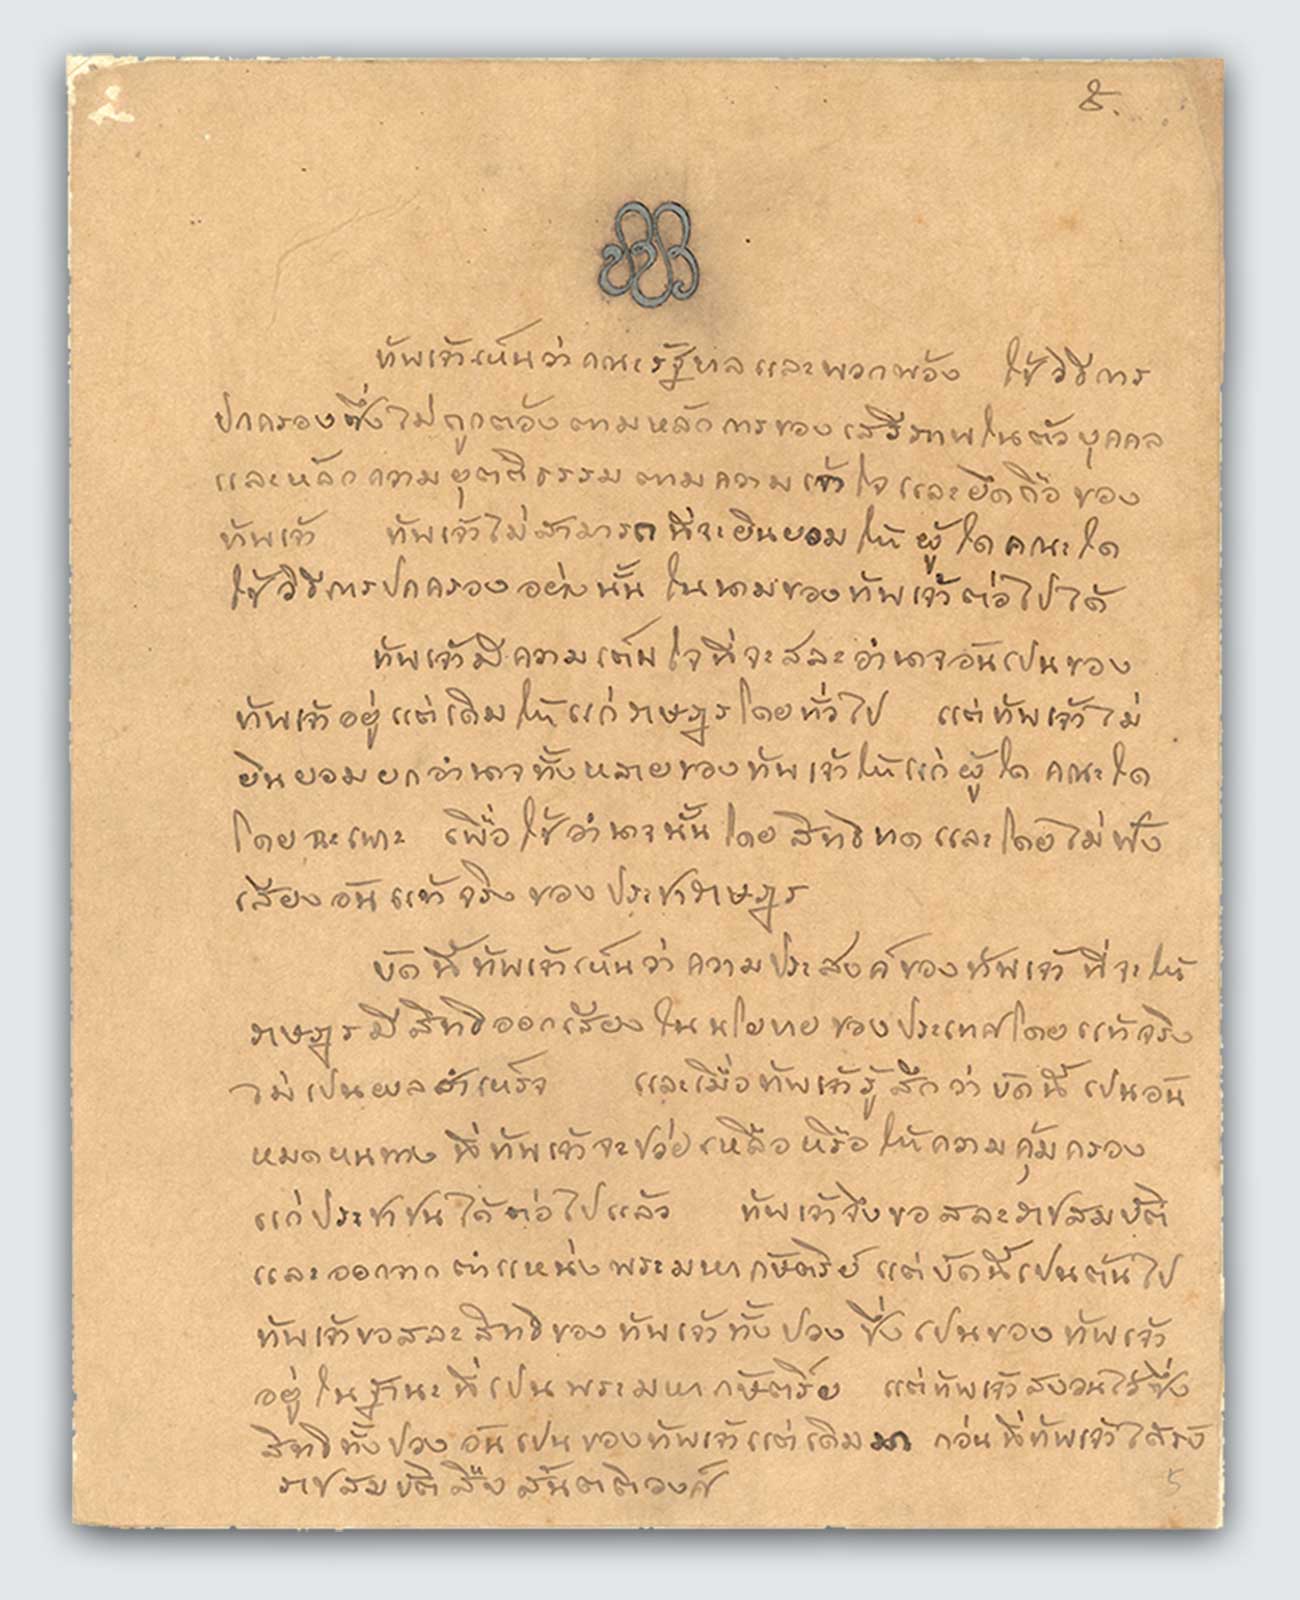 ๕.
ข้าพเจ้าเห็นว่าคณะรัฐบาลและพวกพ้อง ใช้วิธีการ
ปกครองซึ่งไม่ถูกต้องตามหลักการของเสรีภาพในตัวบุคคล
และหลักความยุตติธรรมตามความเข้าใจและยึดถือของ
ข้าพเจ้า ข้าพเจ้าไม่สามารถที่จะยินยอมให้ผู้ใดคณะใด
ใช้วิธีการปกครองอย่างนั้น ในนามของข้าพเจ้าต่อไปได้
ข้าพเจ้ามีความเต็มใจที่จะสละอำนาจอันเป็นของ
ข้าพเจ้าอยู่แต่เดิมให้แก่ราษฎรโดยทั่วไป แต่ข้าพเจ้าไม่
ยินยอมยกอำนาจทั้งหลายของข้าพเจ้าให้แก่ผู้ใด คณะใด
โดยฉะเพาะ เพื่อใช้อำนาจนั้นโดยสิทธิขาดและโดยไม่ฟัง
เสียงอันแท้จริงของประชาราษฎร
บัดนี้ข้าพเจ้าเห็นว่าความประสงค์ของข้าพเจ้าที่จะให้
ราษฎรมีสิทธิออกเสียงในนโยบายของประเทศโดยแท้จริง
ไม่เป็นผลสำเหร็จ และเมื่อข้าพเจ้ารู้สึกว่าบัดนี้เป็นอัน
หมดหนทางที่ข้าพเจ้าจะช่วยเหลือหรือให้ความคุ้มครอง
แก่ประชาชนได้ต่อไปแล้ว ข้าพเจ้าจึงขอสละราชสมบัติ
และออกจากตำแหน่งพระมหากษัตริย์แต่บัดนี้เป็นต้นไป
ข้าพเจ้าขอสละสิทธิของข้าพเจ้าทั้งปวง ซึ่งเป็นของข้าพเจ้า
อยู่ในฐานะที่เป็นพระมหากษัตริย์ แต่ข้าพเจ้าสงวนไว้ซึ่ง
สิทธิทั้งปวงอันเป็นของข้าพเจ้าแต่เดิมมา ก่อนที่ข้าพเจ้าได้รับ
ราชสมบัติสืบสันตติวงศ์
5